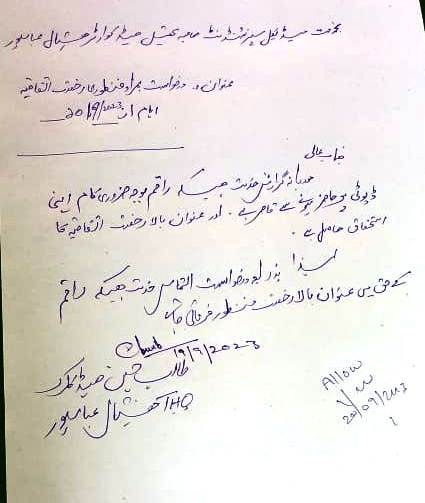 بخدمت میڈیکل سپرنٹنڈنٹ صاحب تحصیل ہیڈ کوارٹر ہسپتال عباسپور
عنوان :۔ درخواست بمراد منظوری رخصت اتفاقیہ
ایام از 20/9/2023
جناب عالی
مودبانہ گزارش خدمت ہیکہ راقم بوجہ ضروری کام اپنی
ڈیوٹی پر حاضر ہونے سے قاصر ہے۔ اور عنوان بالا رخصت اتفاقیہ کا
استحقاق حاصل ہے۔
لہذا بذریعہ درخواست التماس خدمت ہیکہ راقم
کے حق میں عنوان بالا رخصت منظور فرمائی جائے
19/9/2023
طالب حسین ہیڈ کلرک
THQ ہسپتال عباسپور
Allow
20/09/2023